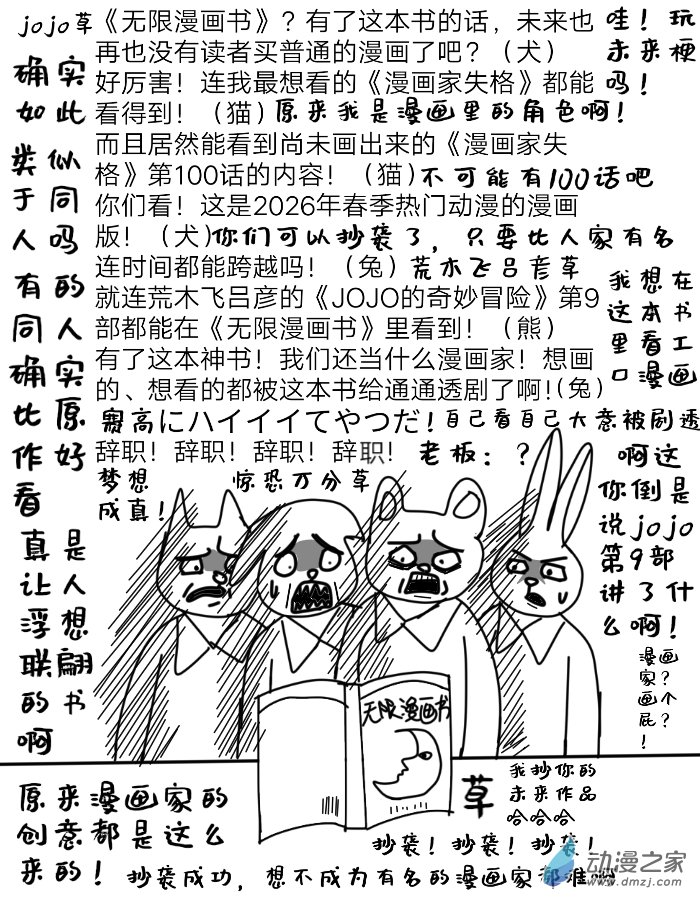 jojo草
《无限漫画书》？有了这本书的话，未来也
再也没有读者买普通的漫画了吧？（犬）
好厉害！连我最想看的《漫画家失格》都能
看得到！（猫）原来我是漫画里的角色啊！
而且居然能看到尚未画出来的《漫画家失
格》第100话的内容！（猫）不可能有100话吧
你们看！这是2026年春季热门动漫的漫画
版！（犬）你们可以抄袭了，只要比人家有名
连时间都能跨越吗！（兔）荒木飞吕彦草
就连荒木飞吕彦的《JOJO的奇妙冒险》第9
部都能在《无限漫画书》里看到！（熊）
有了这本神书！我们还当什么漫画家！想画
的、想看的都被这本书给通通透剧了啊!（兔）
赛高にハイイイてやつだ！自己看自己大意被剧透
辞职！辞职！辞职！辞职！老板：？
哇！玩
未来梗
吗！
我想在
这本书
里看工
口漫画
确实
如此
类似
于同
人吗
有的
同人
确实
比原
作好
看
真是
让人
浮想
联翩
的书
啊
梦想
成真！
惊恐万分草
啊这
你倒是
说jojo
第9部
讲了什
么啊！
漫画
家？
画个
屁？
！
无限漫画书
原来漫画家的
创意都是这么
来的！
草
我抄你的
未来作品
哈哈哈
抄袭！抄袭！抄袭！
抄袭成功，想不成为有名的漫画家都难啊
动漫之家
www.dmzj.com